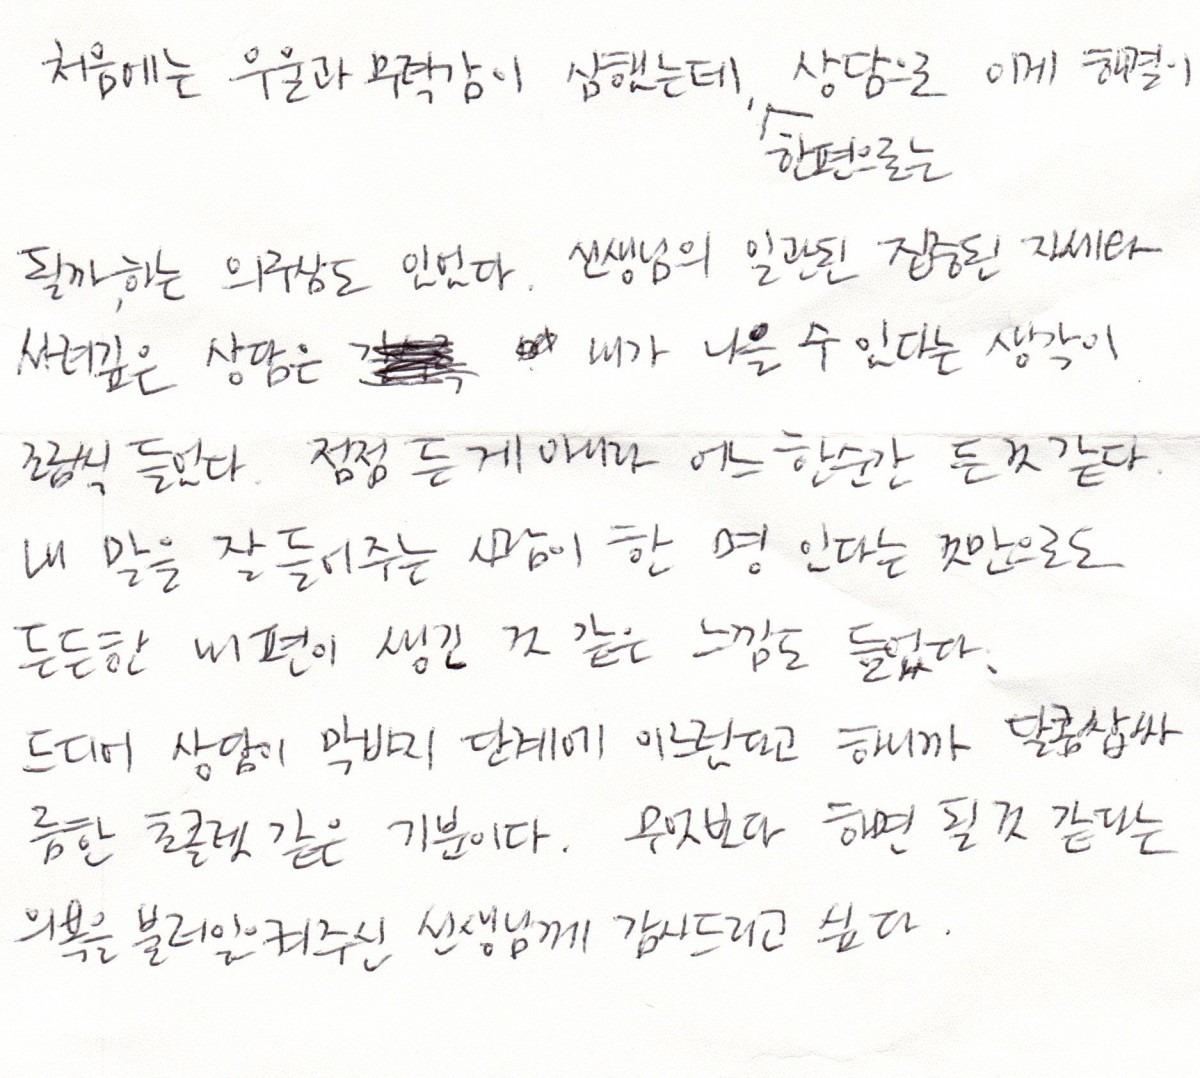 처음에는 우울과 무력감이 심했는데, 상담으로 이게 해결이
한편으로는
될까, 하는 의구심도 있었다. 선생님의 일관된 집중된 자세와
사려깊은 상담은 내가 나을 수 있다는 생각이
조금씩 들었다. 점점 든 게 아니라 어느 한순간 든 것 같다.
내 말을 잘 들어주는 사람이 한 명 있다는 것만으로도
든든한 내 편이 생긴 것 같은 느낌도 들었다.
드디어 상담이 막바지 단계에 이르렀다고 하니까 달콤쌉싸
름한 초콜렛 같은 기분이다. 무엇보다 하면 될 것 같다는
의욕을 불러일으켜주신 선생님께 감사드리고 싶다.